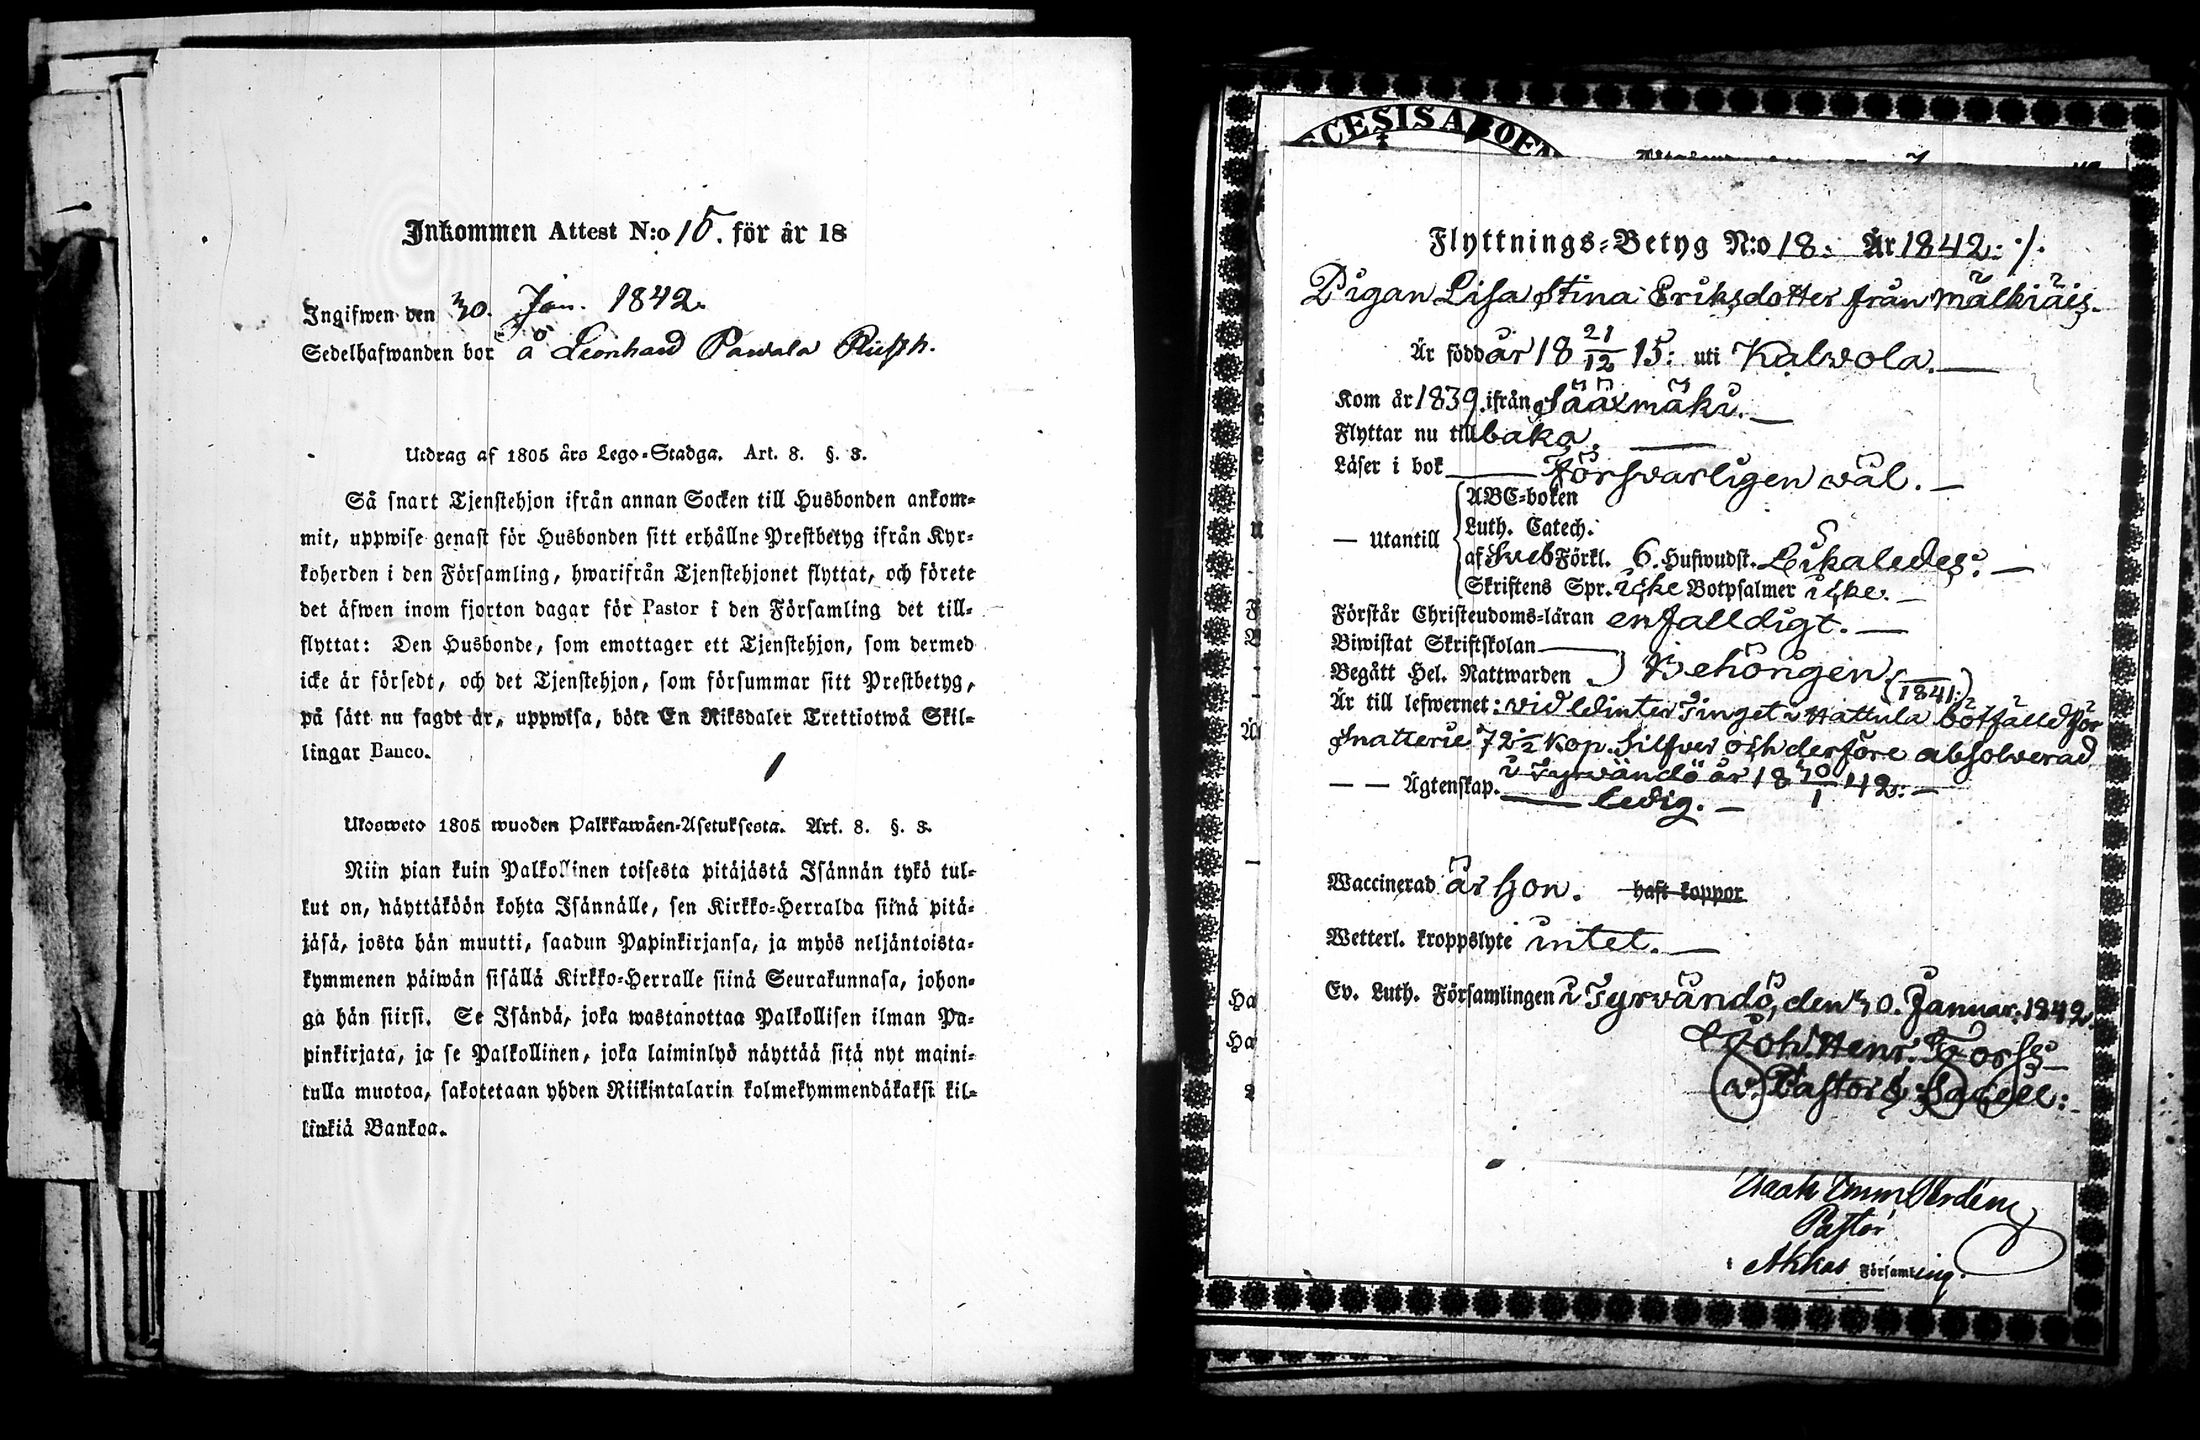 Inkommen Attest N:o 15. för år 18
Ingifwen den 30. Jan. 1842.
Sedelhafwanden bor På Leonhard Pawala Rusth.
Utdrag af 1805 års Lego-Stadga. Art. 8. §. 3.
Så snart Tjenstehjon ifrån annan Socken till Husbonden ankom-
mit, uppwise genast för Husbonden sitt erhållne Prestbetyg ifrån Kyr-
koherden i den Församling, hwarifrån Tjenstehjonet flyttat, och förete
det äfwen inom fjorton dagar för Pastor i den Församling det till-
flyttat: Den Husbonde, som emottager ett Tjenstehjon, som dermed
icke är försedt, och det Tjenstehjon, som försummar sitt Prestbetyg,
på sätt nu sagdt är, uppwisa, böte En Riksdaler Trettiotwå Skil-
lingar Banco.
Ulosweto 1805 wuoden Palkkawäen-Asetuksesta. Art. 8. §. 3.
Niin pian kuin Palkollinen toisesta pitäjästä Isännän tykö tul-
kut on, näyttäköön kohta Isännälle, sen Kirkko-Herralda siinä pitä-
jäsä, josta hän muutti, saadun Papinkirjansa, ja myös neljäntoista-
kymmenen päiwän sisällä Kirkko-Herralle siinä Seurakunnasa, johon-
ga hän siirsi. Se Isändä, joka wastanottaa Palkollisen ilman Pa-
pinkirjata, ja se Palkollinen, joka laiminlyö näyttää sitä nyt maini-
tulla muotoa, sakotetaan yhden Riikintalarin kolmekymmendäkaksi kil-
linkiä Bankoa.
CESIS ABOEN
Flyttnings-Betyg N:o 18: År 1842: ./.
Pigan Lisa Stina Eriksdotter från Mälkiäis.
Är född år 18 21/12 15: uti Kalvola.
Kom år 1839. ifrån Sääxmäki.
Flyttar nu tillbaka.
Läser i bok försvarligen väl.
— Utantill
ABC-boken
Luth. Catech.
af Sveb Förkl. 6. Hufwudst. Likaledes:
Skriftens Spr. icke Botpsalmer icke.
Förstår Christendoms-läran enfalldigt.
Biwistat Skriftskolan
Begått Hel. Nattwarden Behörigen (1841:)
Är till lefwernet: vid Winter Tinget i Hattula bötfälld för
Snatterie 72½ Kop. Silfver och derföre absolverad
i Tyrvändö år 18 30/1 42:
— — Ägtenskap. ledig.
Waccinerad är hon. haft koppor
Wetterl. kroppslyte intet.
Ev. Luth. Församlingen i Tyrvändö, den 30. Januar: 1842.
Joh. Henr. Fors
v. Pastor & Sacell:
Pastor
i Akkas Församling.